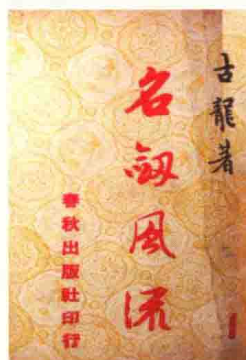 古龍著
名劔風流
春秋出版社印行
1